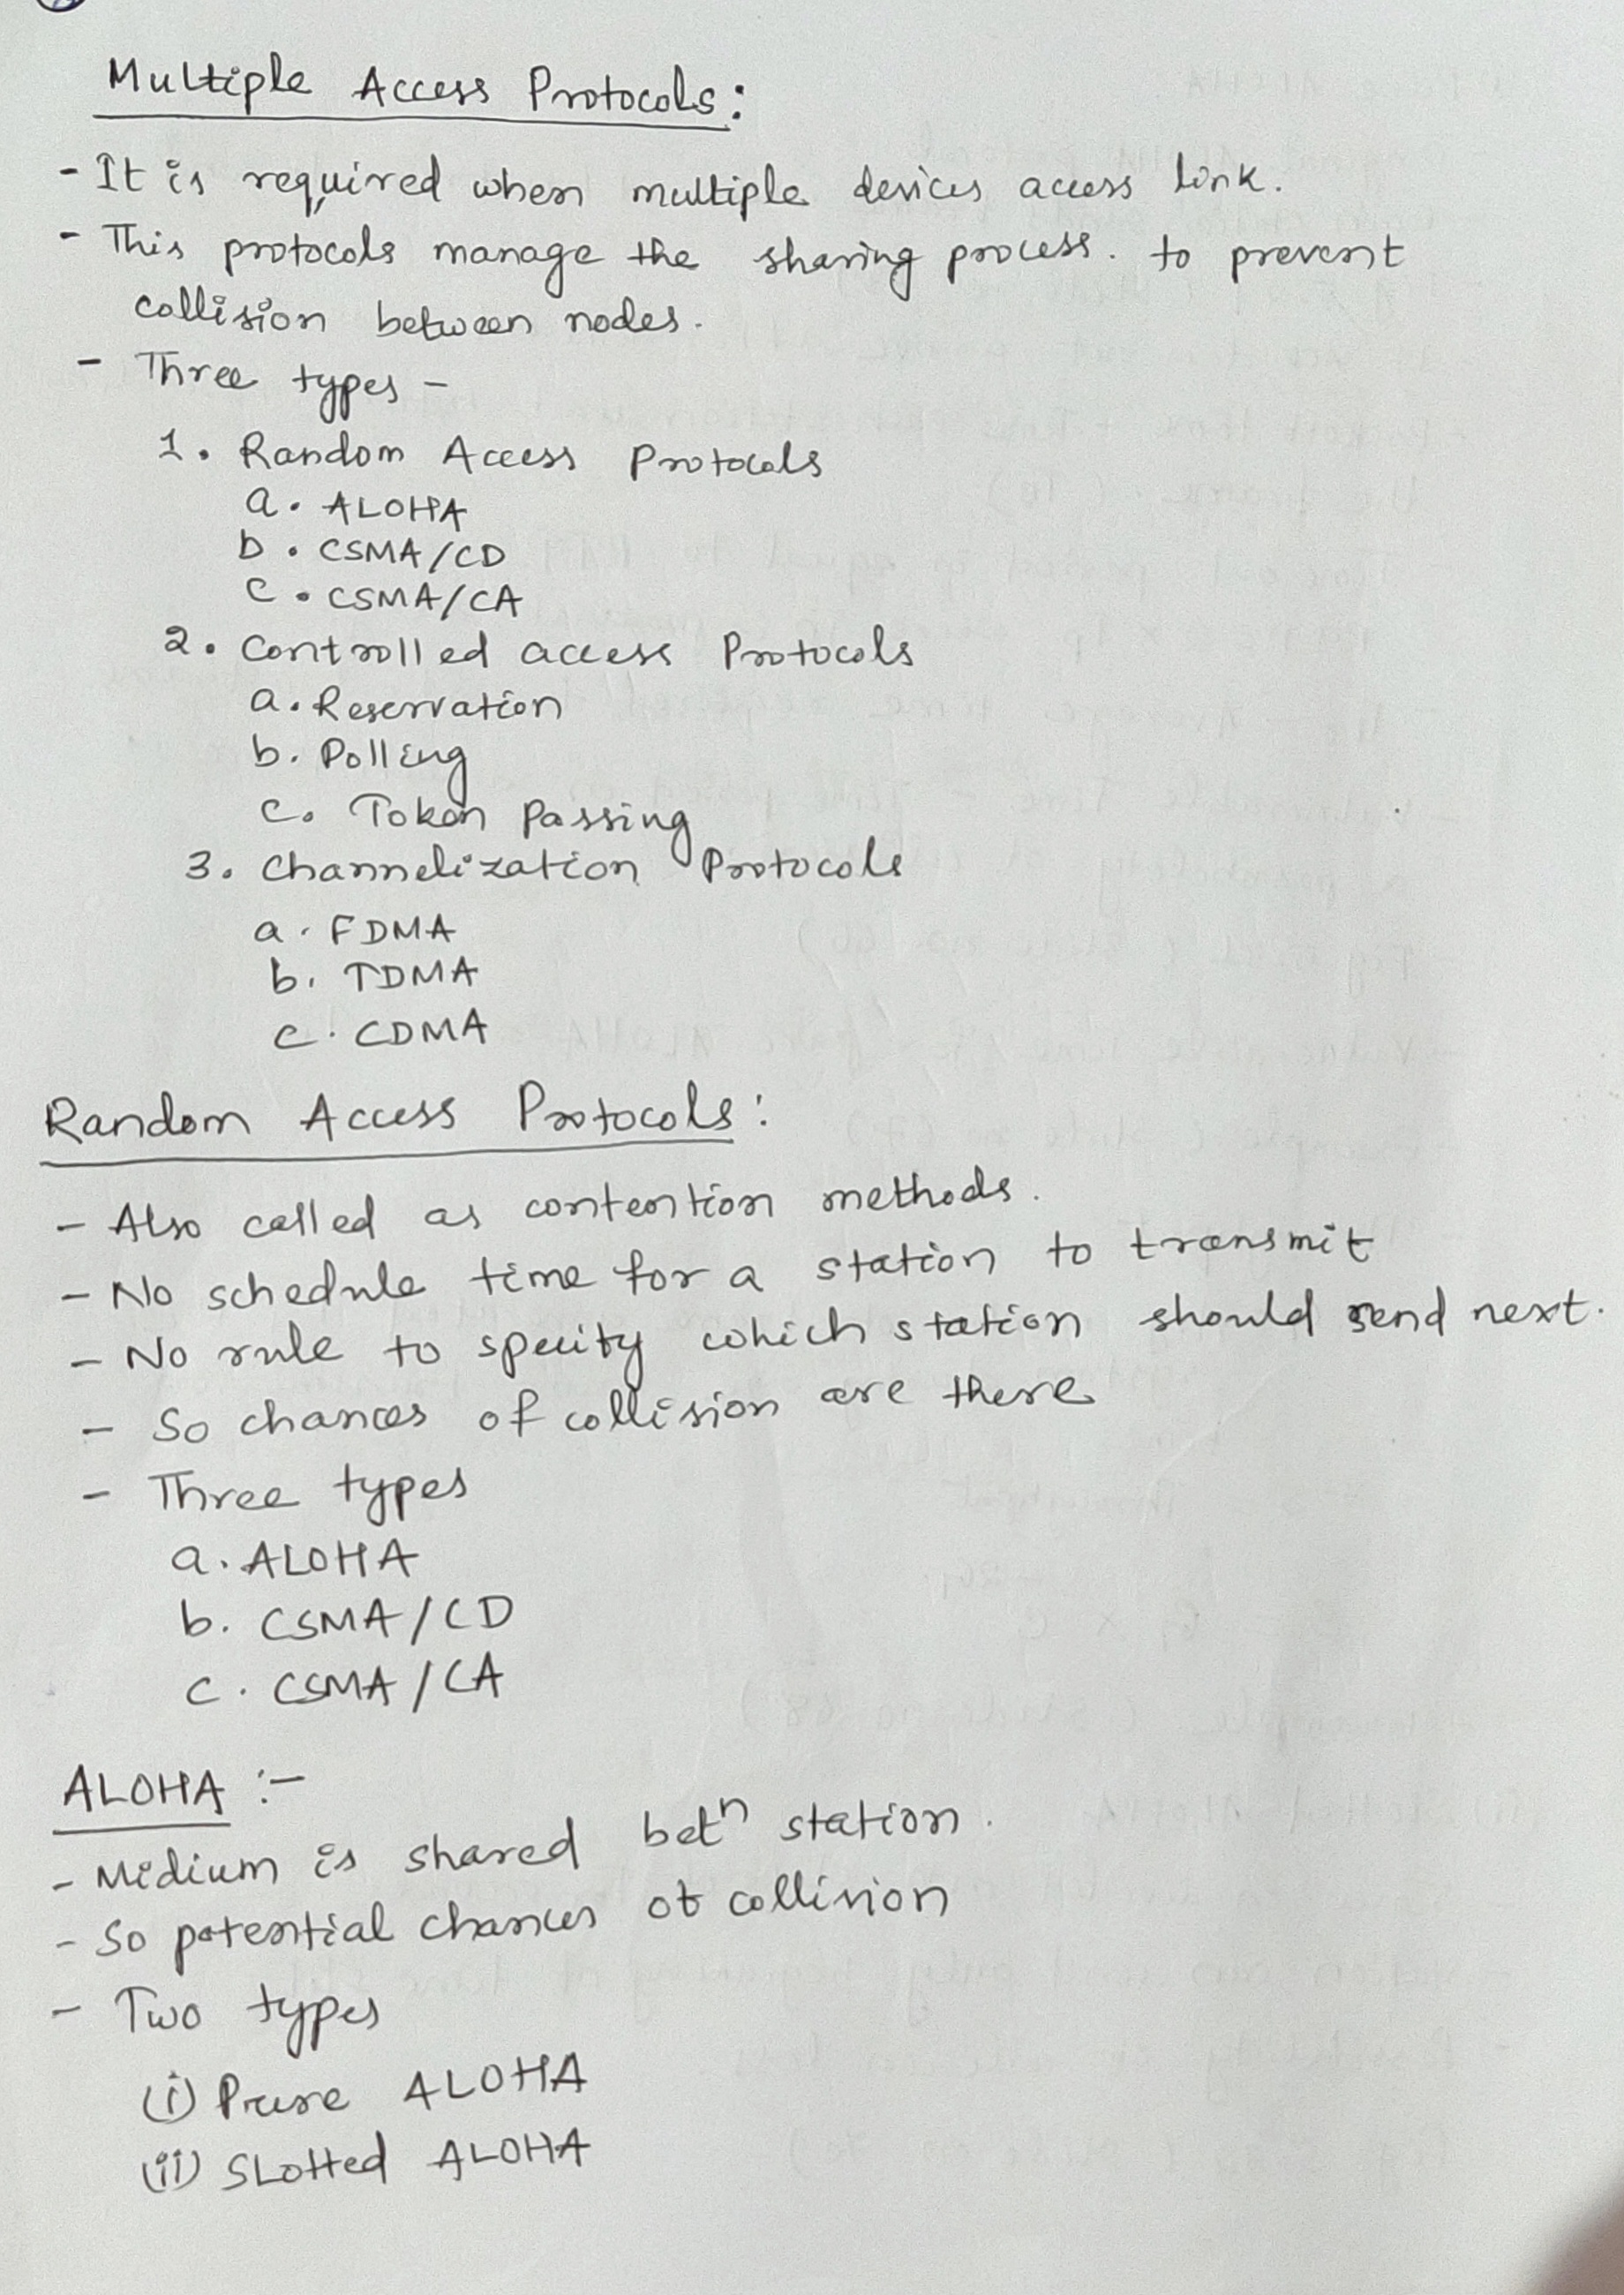 Multiple Access Protocols:
- It is required when multiple devices access link.
- This protocols manage the sharing process. to prevent
collision between nodes.
- Three types -
1. Random Access Protocols
a. ALOHA
b. CSMA/CD
c. CSMA/CA
2. Controlled access Protocols
a. Reservation
b. Polling
c. Token Passing
3. Channelization Protocols
a. FDMA
b. TDMA
c. CDMA
Random Access Protocols:
- Also called as contention methods.
- No schedule time for a station to transmit
- No rule to specify which station should send next.
- So chances of collision are there
- Three types
a. ALOHA
b. CSMA/CD
c. CSMA/CA
ALOHA :-
- Midium is shared betⁿ station.
- So potential chances of collision
- Two types
(i) Pure ALOHA
(ii) Slotted ALOHA